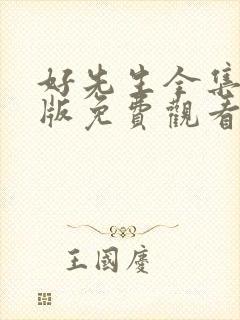 好先生全集
版免費觀看
王國慶